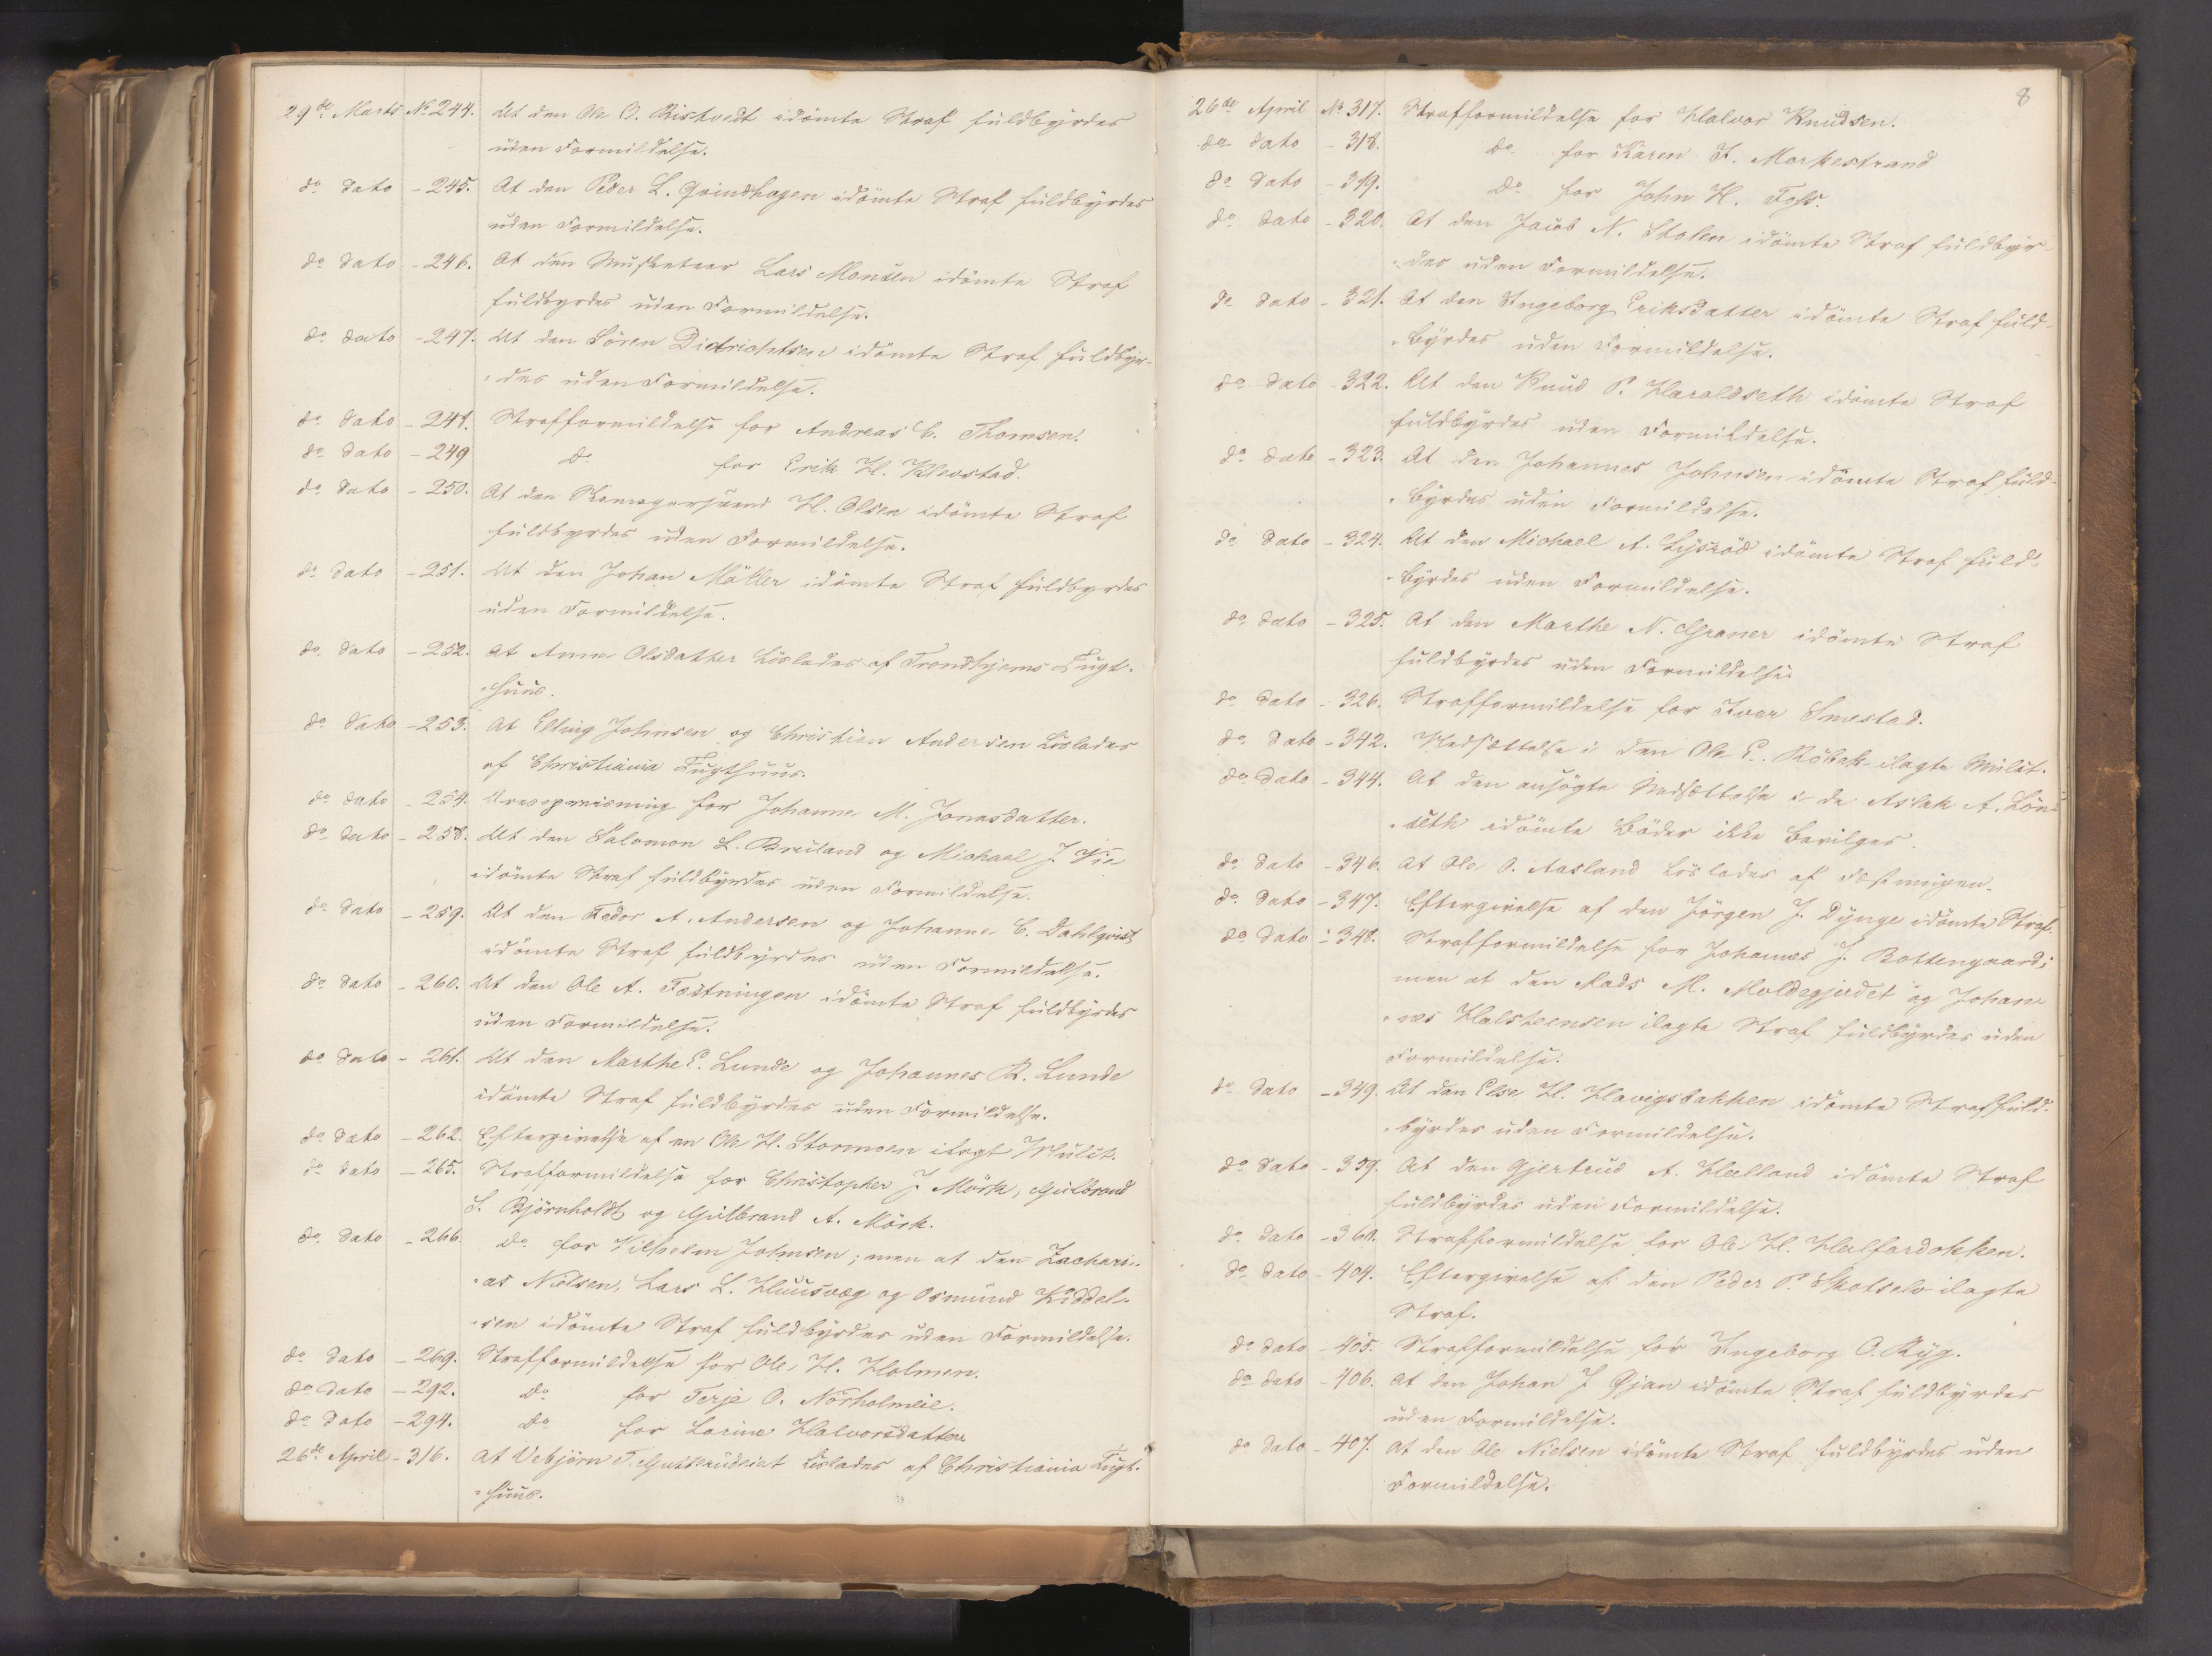 29de Marts No 244. At den Ole O. Ristvedt idömte Straf fuldbyrdes
uden Formildelse.
do dato - 245. At den Peder L. Grindhagen idömte Straf fuldbyrdes
uden Formildelse.
do dato - 246. At den Musketeer Lars Monsen idömte Straf
fuldbyrdes uden Formildelse.
do dato - 247. At den Sören Didrichtsen idömte Straf fuldbyr-
des uden Formildelse.
do dato - 248. Strafformildelse for Andreas C. Thomsen.
do dato - 249 do for Erik H. Klevstad.
do dato - 250. At den H. Olsen idömte Straf
fuldbyrdes uden Formildelse.
do dato - 251. At den Johan Möller idömte Straf fuldbyrdes
uden Formildelse.
do dato - 252. At Anne Olsdatter löslades af Trondhjems Tugt-
huus.
do dato - 253. At Elling Johnsen og Christian Andersen löslades
af Christiania Tugthuus.
do dato - 254. Æresopreisning for Johanne M. Jonasdatter.
do dato - 258. At den Salomon L. Breiland og Michael J. Vie
idömte Straf fuldbyrdes uden Formildelse.
do dato - 259. At den Fedor A. Andersen og Johanne C. Dahlqvist
idömte Straf fuldbyrdes uden Formildelse.
do dato - 260. At den Ole A. Fæstningen idömte Straf fuldbyrdes
uden Formildelse.
do dato - 261. At den Marthe P. Lunde og Johannes R. Lunde
idömte Straf fuldbyrdes uden Formildelse.
do dato - 262. Eftergivelse af en Ole H. Stormoen ilagt Mulct.
do dato - 265. Strafformildelse for Christopher J. Mörk, Gulbrand
S. Björnholdt og Gulbrand A. Mörk.
do dato - 266. do for Vilhelm Johnsen; men at den Zachari-
as Nielsen, Lars L. Huusvæg og Osmund Kiddel-
sen idömte Straf fuldbyrdes uden Formildelse.
do dato - 269. Strafformildelse for Ole H. Holmen.
do dato - 292. do for Terje O. Norholmeie.
do dato - 294. do for Lorine Halvorsdatter
26de April - 316. At Vebjörn T. löslades af Christiania Tugt-
huus.
8
26de April No 317. Strafformildelse for Halvor Knudsen.
do dato - 318. do for Karen H. Morkestrand
do dato - 319. do for John H. Foss.
do dato - 320. At den Jacob N. Stolen idömte Straf fuldbyr-
des uden Formildelse.
do dato - 321. At den Ingeborg Eriksdatter idömte Straf fuld-
byrdes uden Formildelse.
do dato - 322. At den Knud P. Haraldseth idömte Straf
fuldbyrdes uden Formildelse.
do dato - 323. At den Johannes Johnsen idömte Straf fuld-
byrdes uden Formildelse.
do dato - 324. At den Michael A. Lysröd idömte Straf fuld-
byrdes uden Formildelse.
do dato - 325. At den Marthe N. Graner idömte Straf
fuldbyrdes uden Formildelse.
do dato - 326. Strafformildelse for Iver Smestad.
do dato - 342. Nedsættelse i den Ole E. Röbek ilagte Mulct.
do dato - 344. At den ansögte Nedsættelse i de Aslak A. Lön-
seth idömte Böder ikke bevilges.
do dato - 346. At Ole O. Aasland löslades af Fæstningen.
do dato - 347. Eftergivelse af den Jörgen J. Dynge idömte Straf.
do dato - 348. Strafformildelse for Johannes J. Bottengaard;
men at den Mads M. Moldegjerdet og Johan-
nes Halsteensen ilagte Straf fuldbyrdes uden
Formildelse.
do dato - 349. At den Else H. Haugsbakken idömte Straf fuld-
byrdes uden Formildelse.
do dato - 359. At den Gjertrud A. Helland idömte Straf
fuldbyrdes uden Formildelse.
do dato - 360. Strafformildelse for Ole H. Halfardokken.
do dato - 404. Eftergivelse af den Peder P. Skotselv ilagte
Straf.
do dato - 405. Strafformildelse for Ingeborg O. Ryg.
do dato - 406. At den Johan J Gjan idömte Straf fuldbyrdes
uden Formildelse.
do dato - 407. At den Ole Nielsen idömte Straf fuldbyrdes uden
Formildelse.